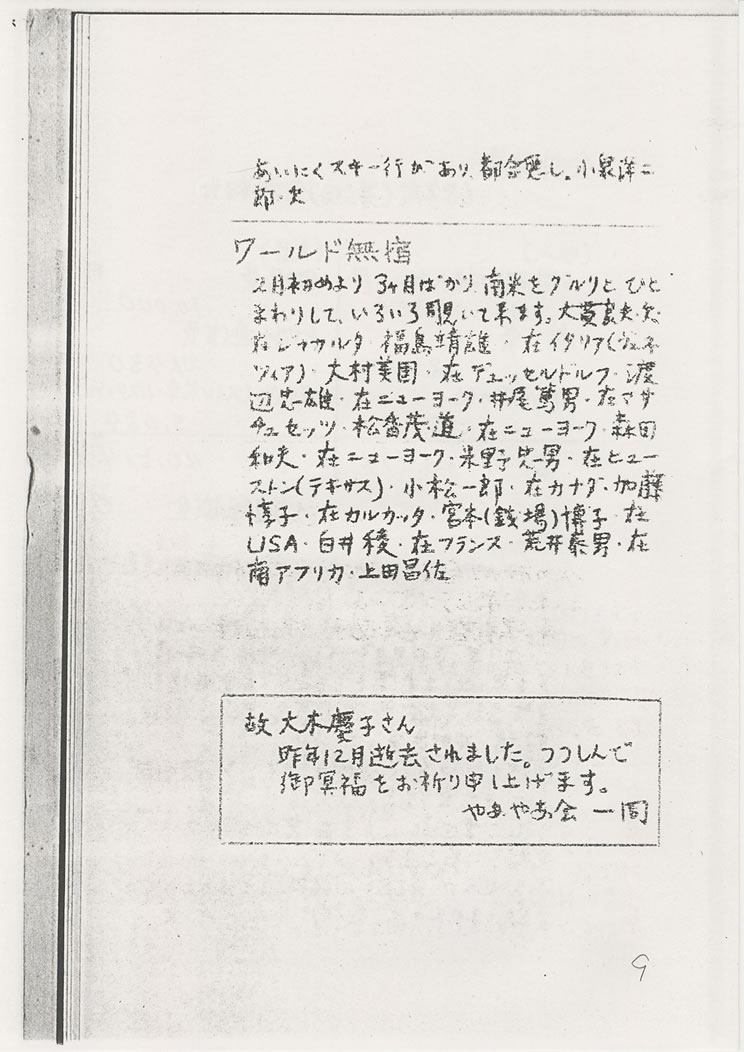 あいにくスキー行があり、都合悪し。小泉洋二
郎・欠
ワールド無宿
2月初めより3ヶ月ばかり、南米をグルリとひと
まわりして、いろいろ覗いて来ます。大貫良夫・欠
在ジャカルタ・福島靖雄・在イタリア(ヴェネ
ツィア)・大村美国・在デュッセルドルフ・渡
辺忠雄・在ニューヨーク・井尾篤男・在マサ
チュセッツ・松番茂・道・在ニューヨーク・森田
和夫・在ニューヨーク・米野忠男・在ヒュー
ストン(テキサス)・小松一郎・在カナダ・加藤
惇子・在カルカッタ・宮本(銭場)博子・在
USA・白井稜・在フランス・荒井泰男・在
南アフリカ・上田昌佐
故 大木慶子さん
昨年12月逝去されました。つつしんで
御冥福をお祈り申し上げます。
やあやあ会 一同
9